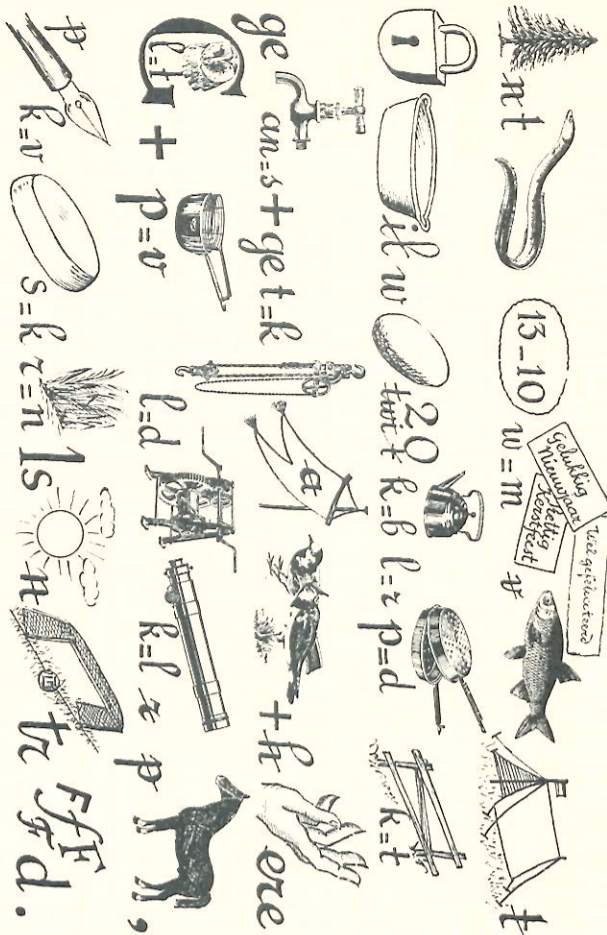 nt 13-10 w=m Gelukkig Nieuwjaar Prettig Kerstfeest Wel gefeliciteerd v t
il w 20 twi t k=b l=r p=d k=t
ge an=s + ge t=k et + h ere
G l=t + p=v l=d k=l z p ,
p k=v s=k r=n 1s n tr F f F F d.